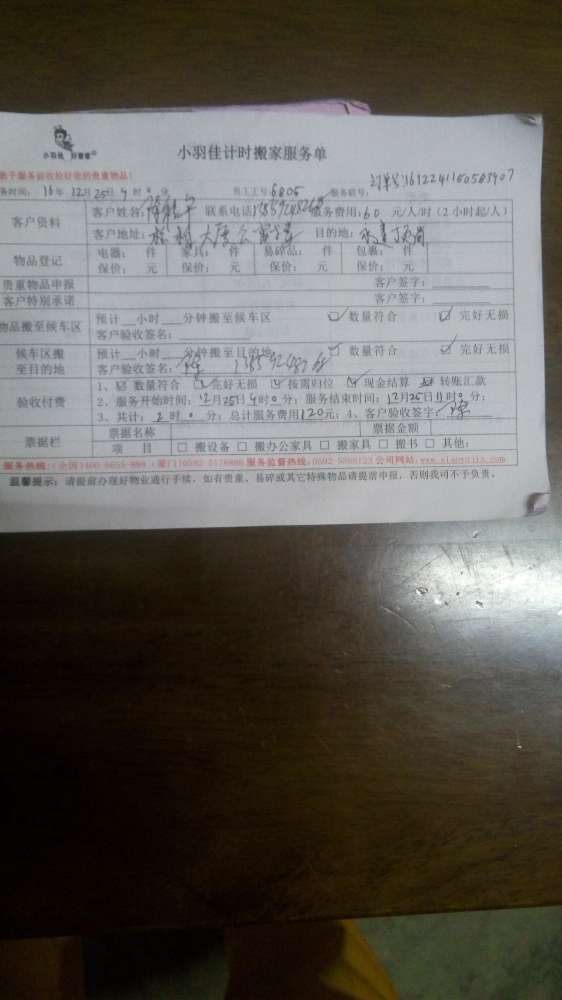 小羽佳 好管家
小羽佳计时搬家服务单
服务前收捡好您的贵重物品!
订单号:1612241150583907
务时间: 16年 12月 25日 9时 0分 员工工号 6805 服务联号:
客户资料
客户姓名: 联系电话 服务费用:60 元/人/时(2小时起/人)
客户地址: 目的地:
物品登记
电器: 件 家具: 件 易碎品: 件 包裹: 件
保价: 元 保价: 元 保价: 元 保价: 元
贵重物品申报 客户签字:
客户特别承诺 客户签字:
物品搬至候车区
预计 小时 分钟搬至候车区 ☑数量符合 ☑完好无损
客户验收签名:
候车区搬至目的地
预计 小时 分钟搬至目的地 ☑数量符合 ☑完好无损
客户验收签名:
验收付费
1、☑数量符合 ☑完好无损 ☑按需归位 ☑现金结算 ☑转账汇款
2、服务开始时间:12月25日9时0分; 服务结束时间:12月25日11时0分;
3、共计: 2时0分; 总计服务费用120元; 4、客户验收签字:
票据栏
票据名称 票据金额
项 目 □搬设备 □搬办公家具 □搬家具 □搬书 □其他:
服务热线:(全国)400-6655-888 (厦门)0592-5178888 服务监督热线:0592- 公司网站:
温馨提示: 请提前办理好物业通行手续, 如有贵重、易碎或其它特殊物品请提前申报, 否则我司不予负责。